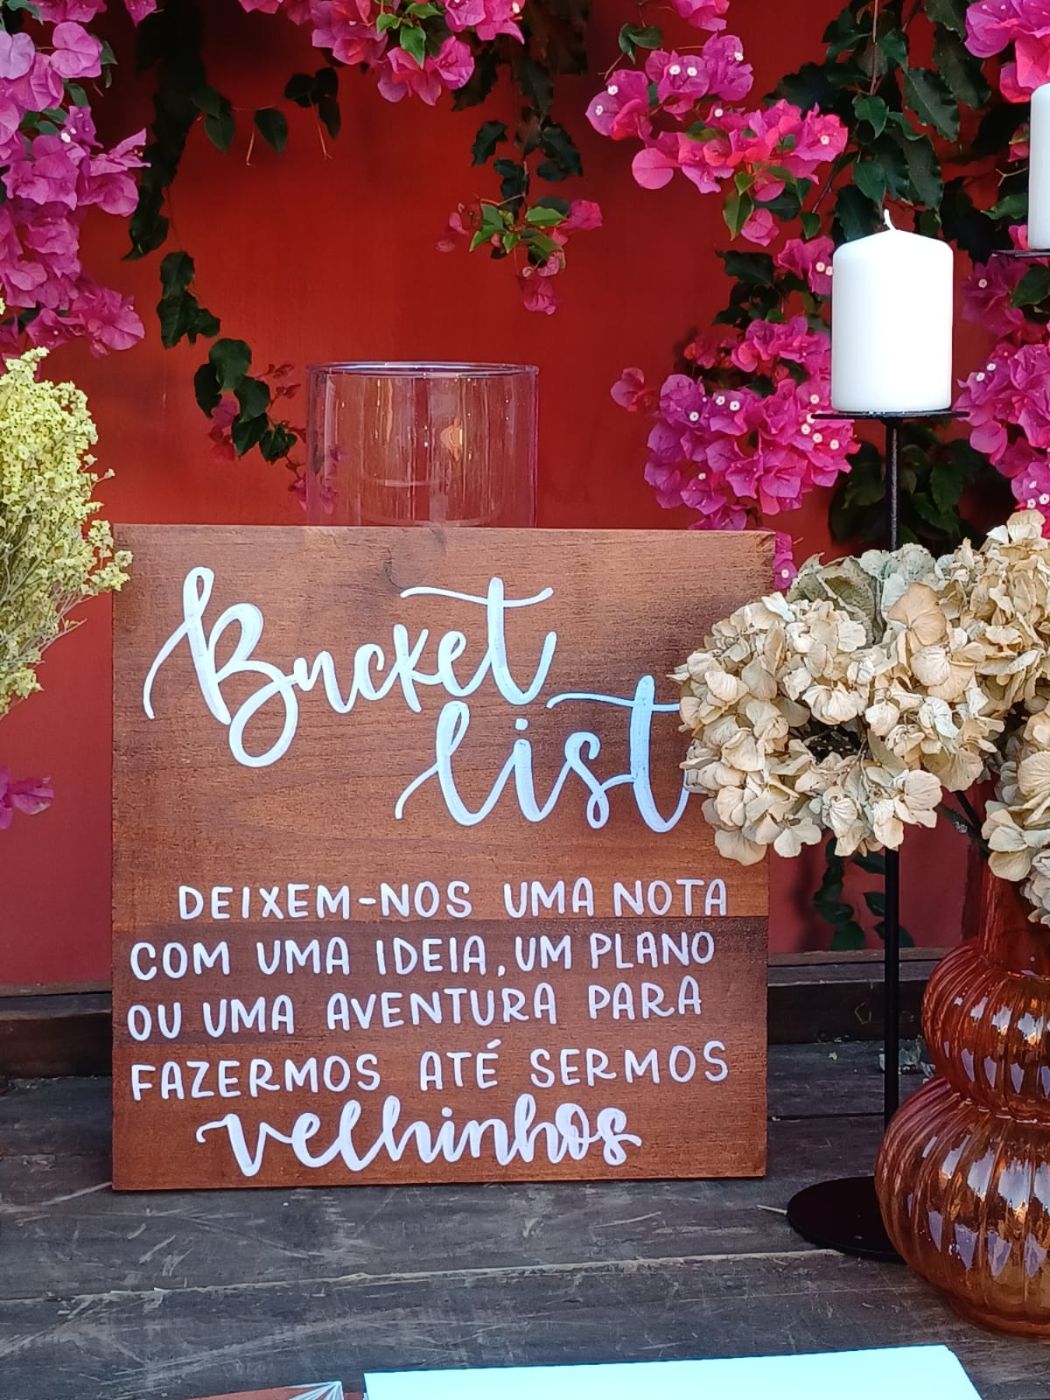 Bucket
list
DEIXEM-NOS UMA NOTA
COM UMA IDEIA, UM PLANO
OU UMA AVENTURA PARA
FAZERMOS ATÉ SERMOS
velhinhos